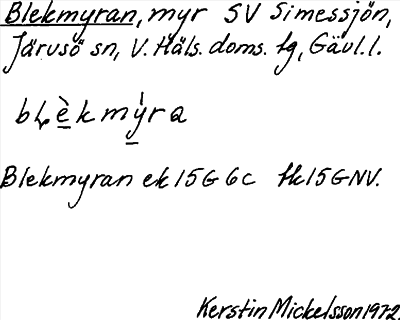 Blekmyran, myr SV Simessjön,
Järvsö sn, V. Häls. doms. tg, Gävl. l.
bḷèkmýra
Blekmyran ek 15G 6c tk 15G NV.
Kerstin Mickelsson 1972.